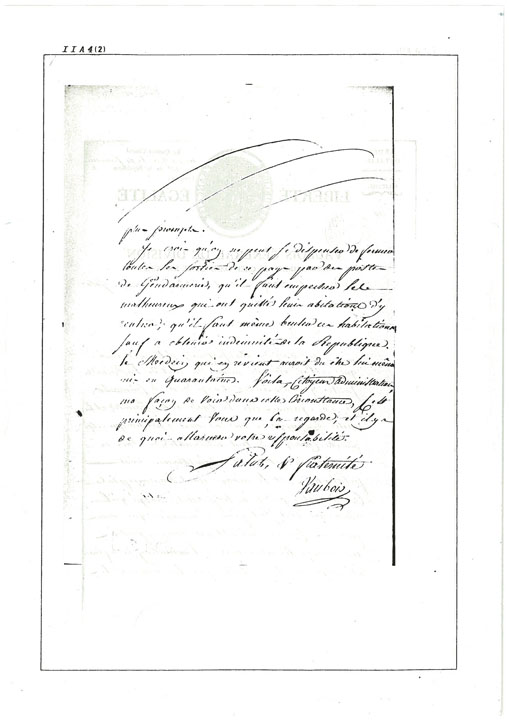 IIA4(2)
LIBERTÉ EGALITÉ
plus prompte.
Je crois qu'on ne peut se dispenser de fermer
toutes les sorties de ce pays par des postes
de Gendarmerie, qu'il faut empecher les
malheureux qui ont quittés leurs abitations d'y
rentrer; qu'il faut même bruler ces habitations
sauf a obtenir indemnité de la Republique.
le Medecin qui en revient auroit du etre lui même
mis en Quarantaine. Voila, Citoyens administrateurs,
ma façon de voir dans cette Circonstance, C'est
principalement vous que ça regarde, et il y a
de quoi allarmer votre responsabilité.
Salut, & fraternité
Vaubois